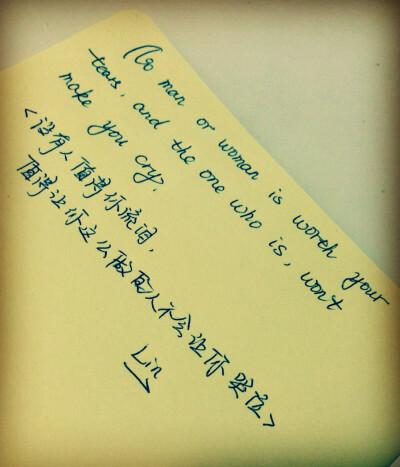 No man or woman is worth your
tears, and the one who is, wont
make you cry.
<没有人值得你流泪,
值得让你这么做的人不会让你哭泣>
Lin